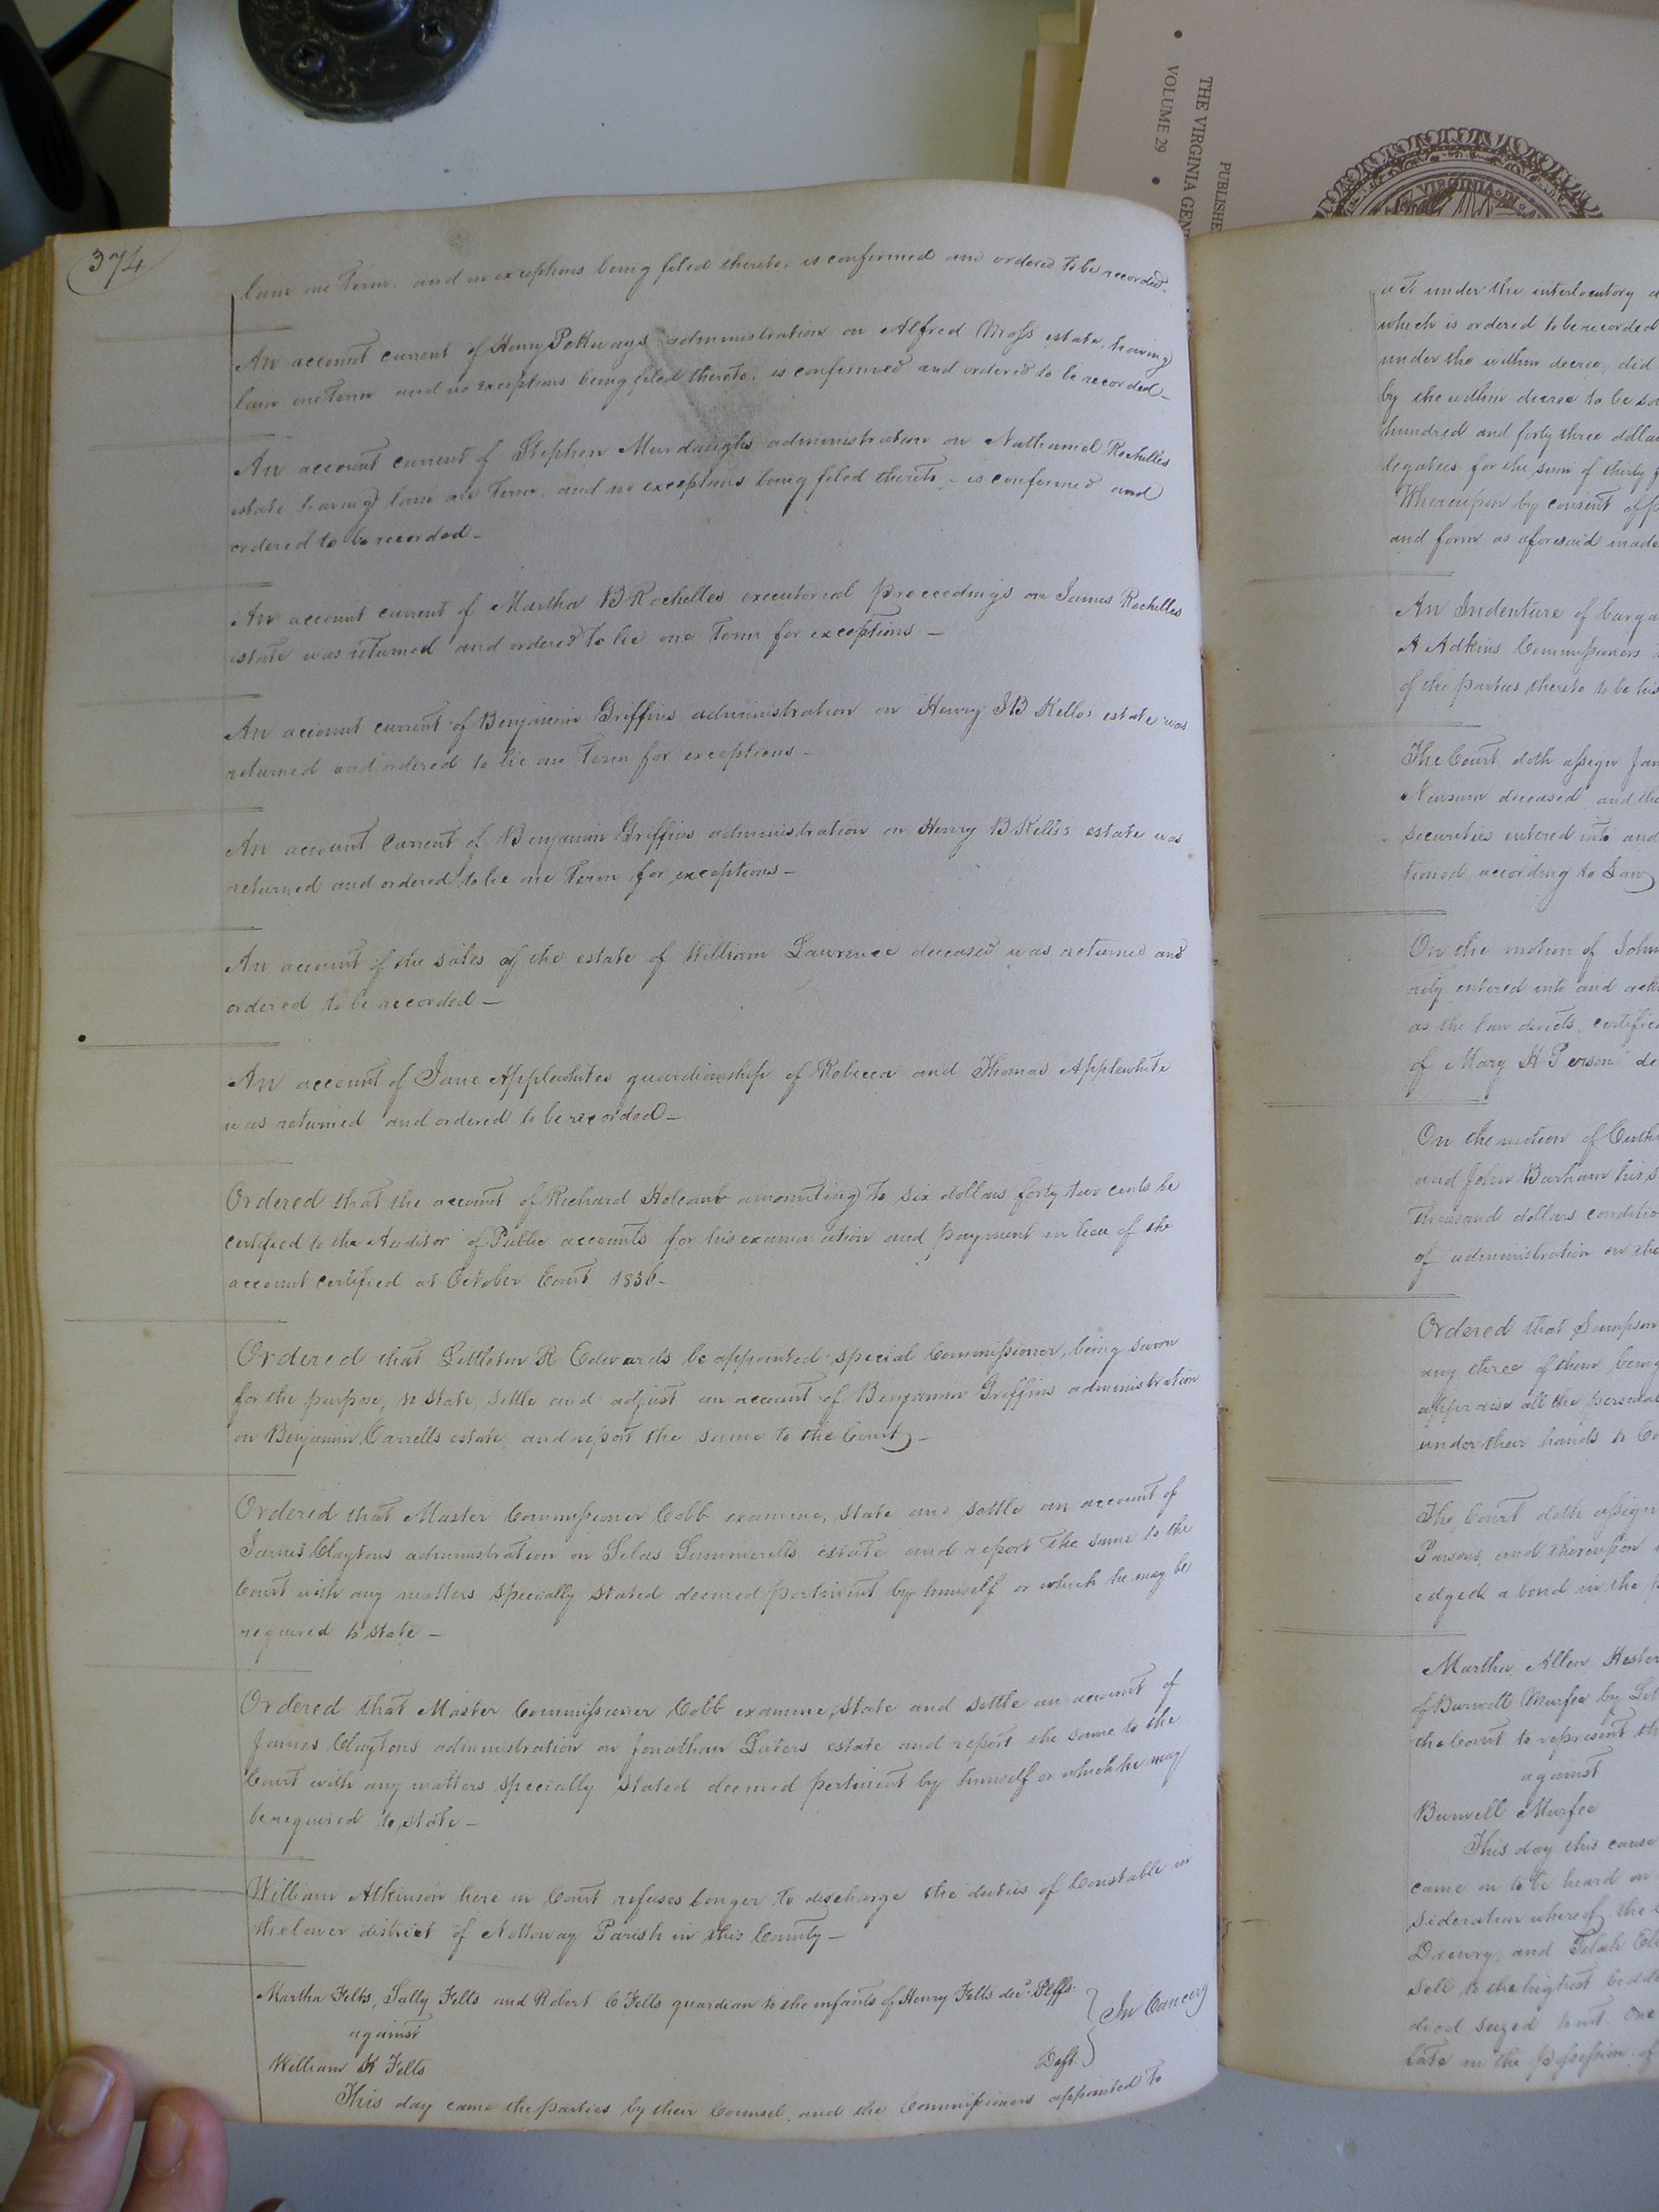 PUBLISHE
THE VIRGINIA GEN
VOLUME 29 •
VIRGINIA
374
lain one Term. and no exceptions being filed thereto, is confirmed and ordered to be recorded.
An account current of Henry Pettways administration on Alfred Moss estate, having
lain one Term and no exceptions being filed thereto, is confirmed and ordered to be recorded_
An account current of Stephen Murdaughs administration on Nathaniel Rochelles
estate having lain one Term, and no exceptions being filed thereto, - is confirmed and
ordered to be recorded_
An account current of Martha B Rochelles executorial proceedings on James Rochelles
estate was returned and ordered to lie one Term for exceptions _
An account current of Benjamin Griffins administration on Henry J B Kellos estate was
returned and ordered to lie one Term for exceptions_
An account current of Benjamin Griffins administration on Henry B Kellos estate was
returned and ordered to lie one Term for exceptions_
An account of the sales of the estate of William Lawrence deceased was returned and
ordered to be recorded_
An account of Jane Applewhites guardianship of Rebecca and Thomas Applewhite
was returned and ordered to be recorded_
Ordered that the account of Richard Holcomb amounting to six dollars forty two cents be
certified to the Auditor of Public accounts for his examination and payment in lieu of the
account certified at October Court 1836_
Ordered that Littleton R Edwards be appointed special Commissioner, being sworn
for the purpose, to state, settle and adjust an account of Benjamin Griffins administration
on Benjamin Carrells estate and report the same to the Court_
Ordered that Master Commissioner Cobb examine, state and settle an account of
James Claytons administration on Silas Summerells estate and report the same to the
Court with any matters specially stated deemed pertinent by himself or which he may be
required to state _
Ordered that Master Commissioner Cobb examine, state and settle an account of
James Claytons administration on Jonathan Luters estate and report the same to the
Court with any matters specially stated deemed pertinent by himself or which he may
be required to state_
William Atkinson here in Court refuses longer to discharge the duties of Constable in
the lower district of Nottoway Parish in this County_
Martha Felts, Sally Felts and Robert C Felts guardian to the infants of Henry Felts decd. Plffs.
In Cancery
against
William H Felts Deft.
This day came the parties by their Counsel, and the Commissioners appointed to
act under the interlocutory
which is ordered to be recorded
under the within decree, did
by the within decree to be
hundred and forty three
legatees for the sum of thirty
Whereupon by consent of
and form as aforesaid made
An Indenture of
A Adkins Commissioners
of the parties thereto to be his
The Court doth assign
Newsum deceased, and the
securities entered into and
tioned according to Law
On the motion of John
rity entered into and
as the law directs, certific
of Mary H Person de
On the motion of
and John Barham his
Thousand dollars conditio
of administration on the
Ordered that Sampson
any three of them being
appraise all the personal
under their hands to
The Court doth assign
Parsons, and thereupon
edged a bond in the
Martha Allen Hester
of Burwell Murfee by
the Court to represent
against
Burwell Murfee
This day this cause
came on to be heard on
sideration whereof, the
Drewry, and
sell to the highest
died seized to wit. One
late in the possession of